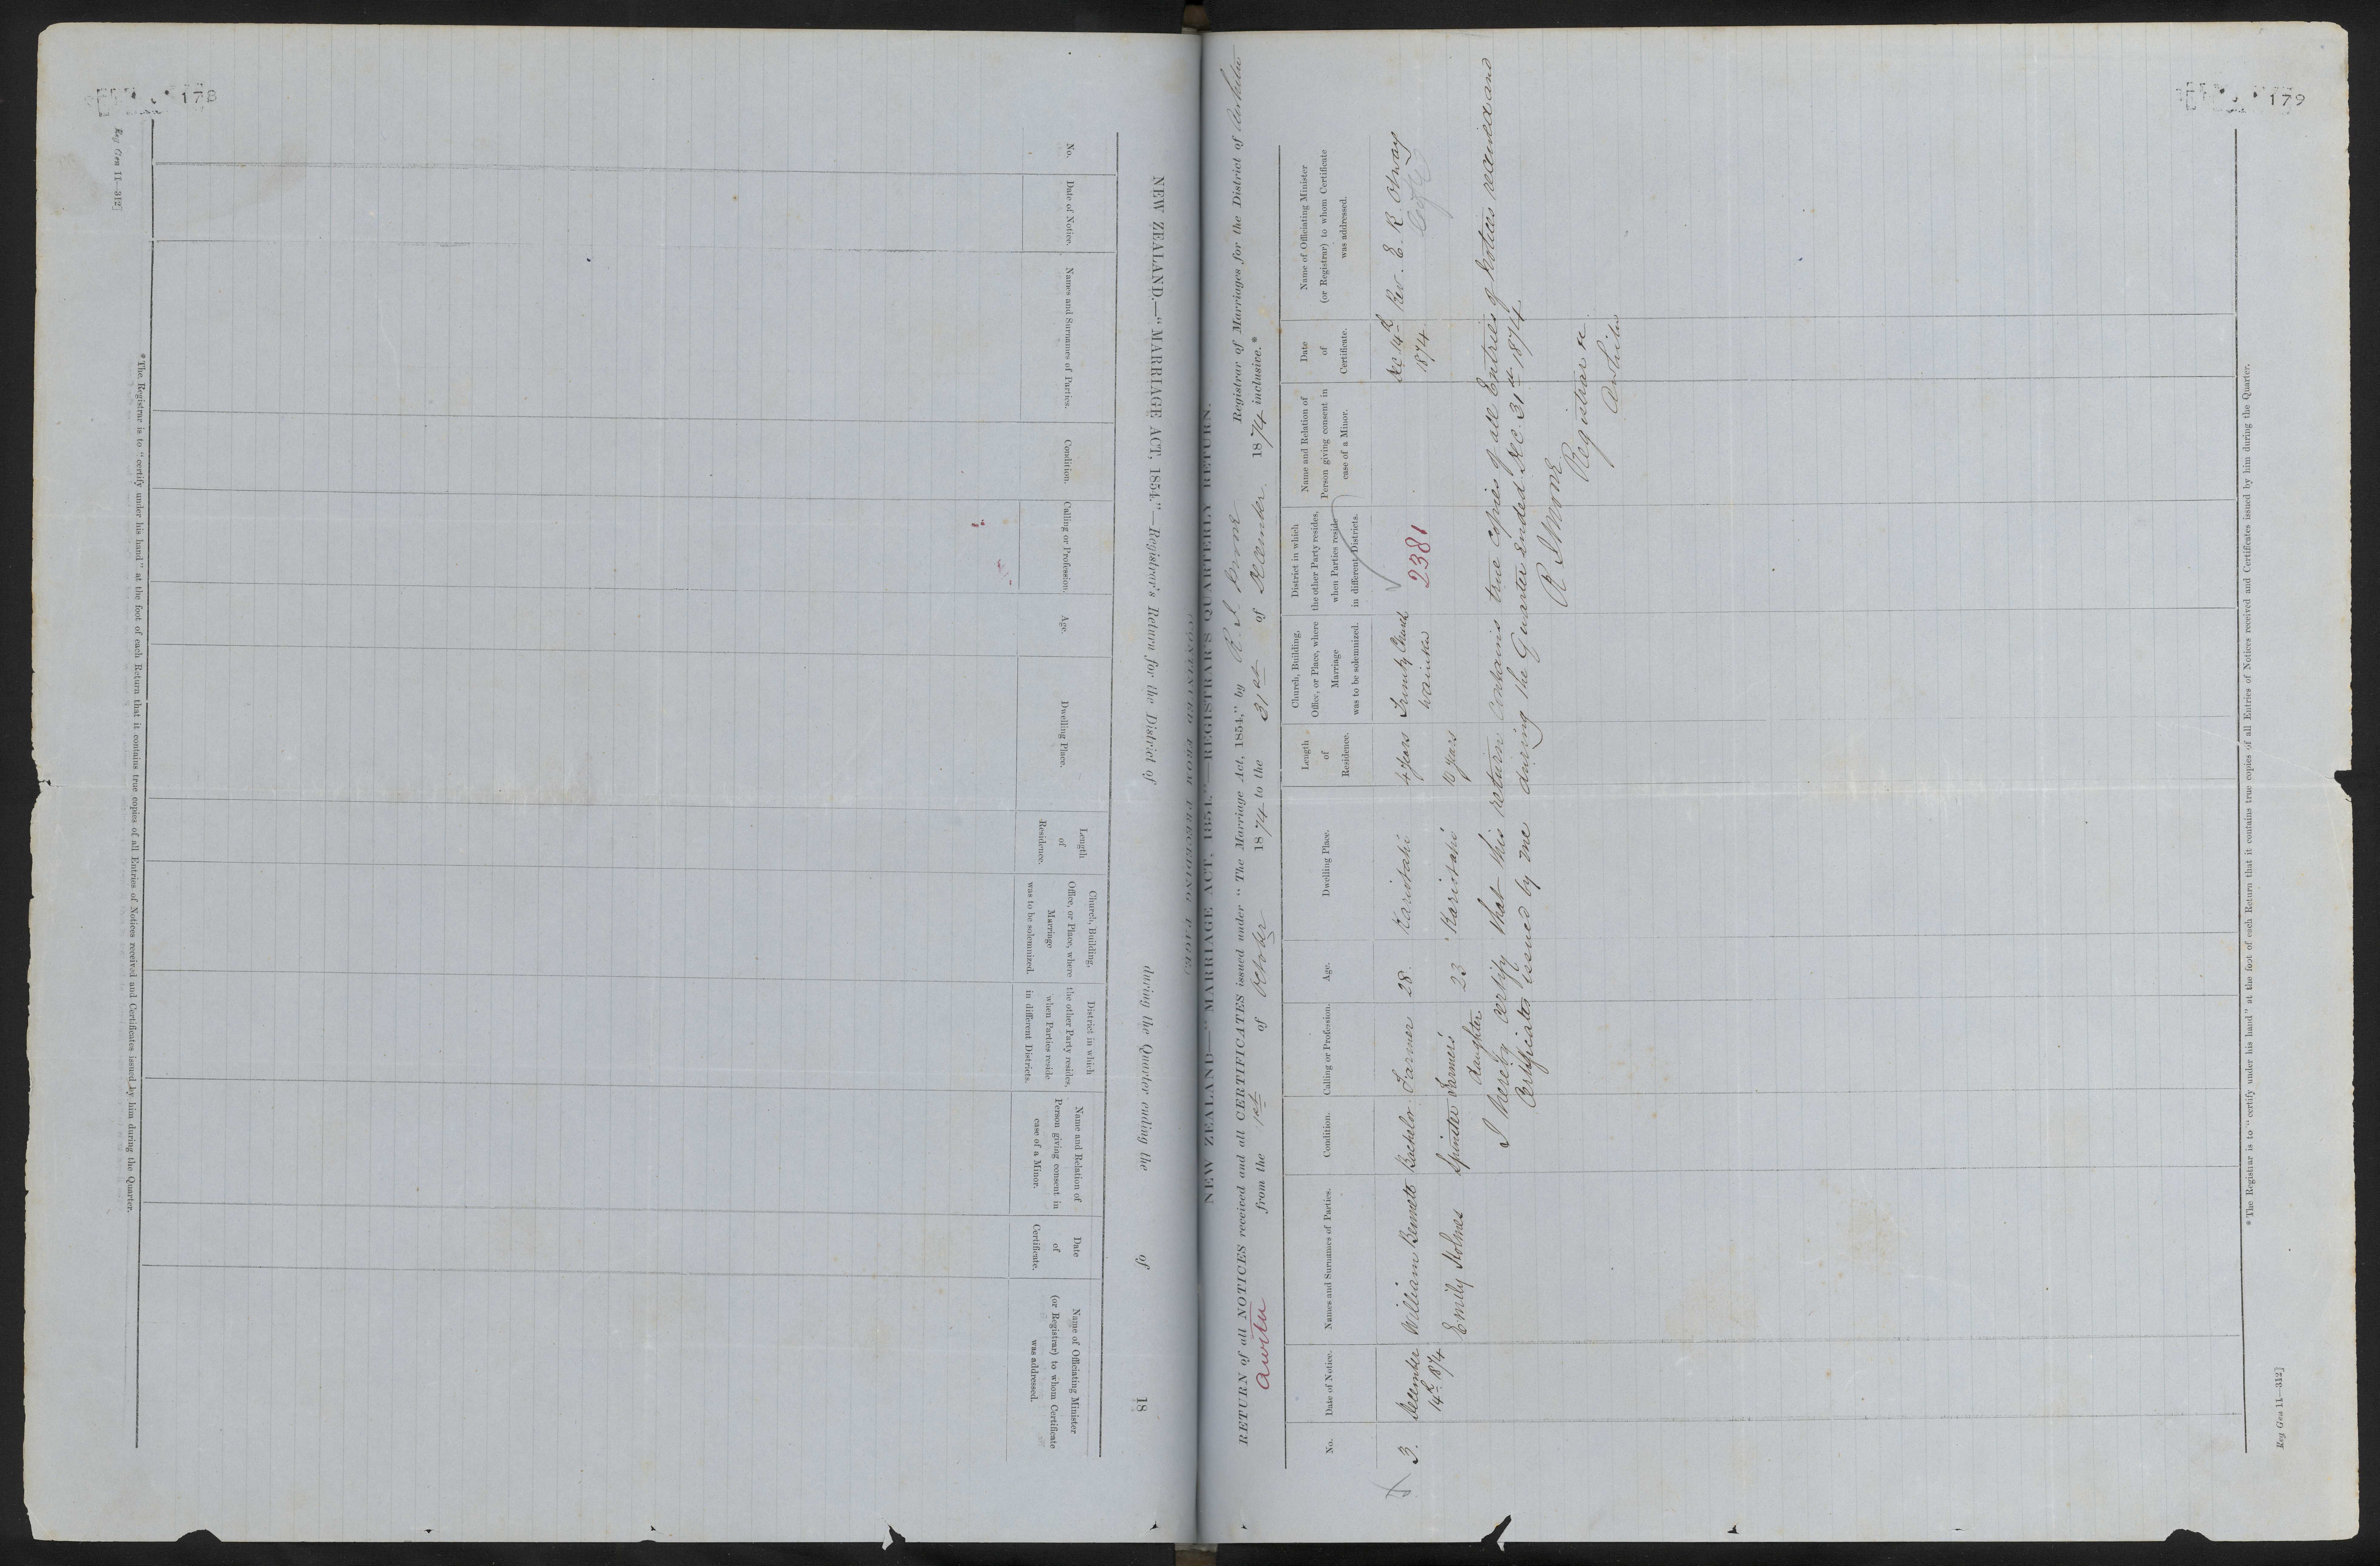 178
Reg Gen 11—312]
NEW ZEALAND.—"MARRIAGE ACT, 1854."—Registrar's Return for the District of during the Quarter ending the of 18
No.
Date of Notice.
Names and Surnames of Parties.
Condition.
Calling or Profession.
Age.
Dwelling Place.
Length
of
Residence.
Church, Building,
Office, or Place, where
Marriage
was to be solemnized.
District in which
the other Party resides,
when Parties reside
in different Districts.
Name and Relation of
Person giving consent in
case of a Minor.
Date
of
Certificate.
Name of Officiating Minister
(or Registrar) to whom Certificate
was addressed.
*The Registrar is to "certify under his hand" at the foot of each Return that it contains true copies of all Entries of Notices received and Certificates issued by him during the Quarter.
179
NEW ZEALAND—"MARRIAGE ACT, 1854."—REGISTRAR'S QUARTERLY RETURN.
RETURN of all NOTICES received and all CERTIFICATES issued under "The Marriage Act, 1854," by R. S. Registrar of Marriages for the District of
Awitu from the 1st of October 1874 to the 31st of December 1874 inclusive.*
No.
Date of Notice.
Names and Surnames of Parties.
Condition.
Calling or Profession.
Age.
Dwelling Place.
Length
of
Residence.
Church, Building,
Office, or Place, where
Marriage
was to be solemnized.
District in which
the other Party resides,
when Parties reside
in different Districts.
Name and Relation of
Person giving consent in
case of a Minor.
Date
of
Certificate.
Name of Officiating Minister
(or Registrar) to whom Certificate
was addressed.
3. December William Bennett Bachelor Farmer 28 4 years Trinity Church Dec 14th Rev. E. R. Otway
14th 1874 2381 1874
Emily Holmes Spinster Farmer's 23 10 years
daughter
I hereby certify that this return contains true copies of all Entries of Notices received and
Certificates issued by me during the Quarter Ended Dec. 31st 1874.
R S
Registrar
*The Registrar is to "certify under his hand" at the foot of each Return that it contains true copies of all Entries of Notices received and Certificates issued by him during the Quarter.
Reg Gen 11—312]